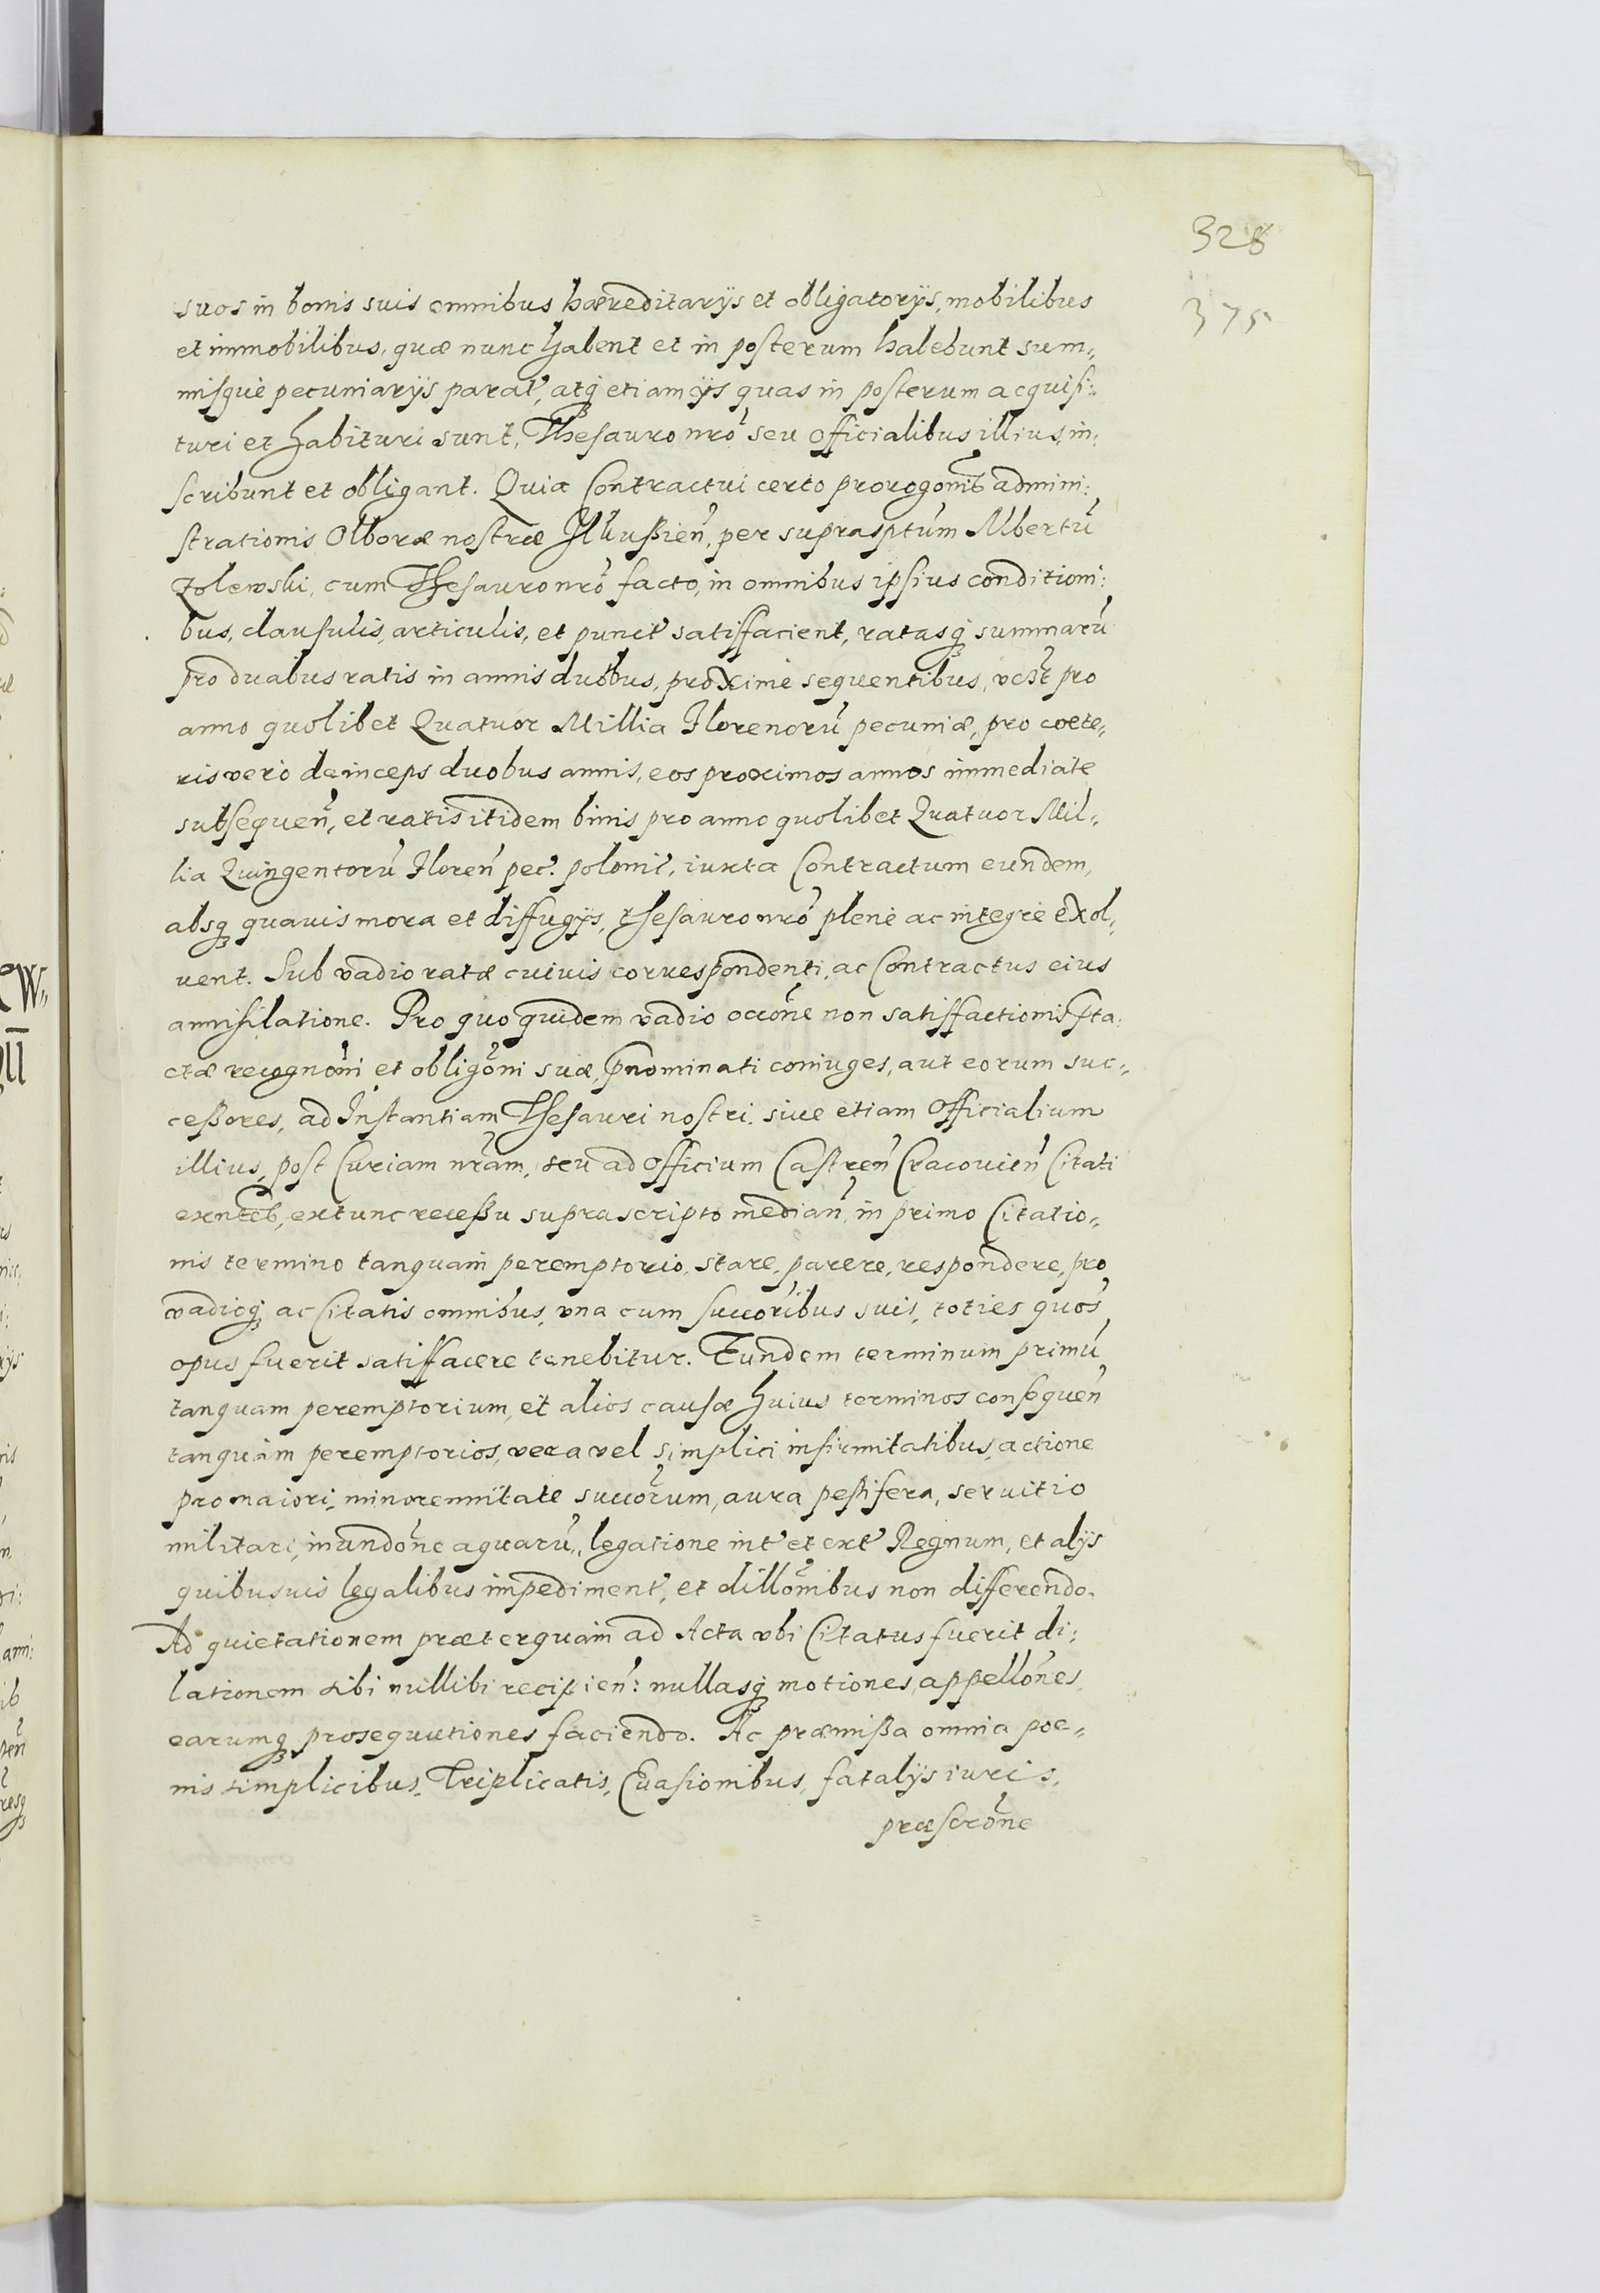 328
375
suos in bonis suis omnibus haereditarijs et obligatorijs, mobilibus
et immobilibus, quae nunc habent et in posterum habebunt sum„
misque pecuniarijs parat̃, atq̃ etiam ijs quas in posterum acquisi:
turi et habituri sunt, Thesauro nr̃o seu officialibus illius in:
scribunt et obligant. Quia Contractui certo prorogõnis admini:
strationis Olborae nostrae Ilkussien̄, per suprasptum Albertũ
Zolewski, cum Thesauro nr̃o facto, in omnibus ipsius conditioni:
bus, clausulis, articulis, et punct̃ satisfacient, ratasq̃ summarũ
pro duabus ratis in annis duobus, proxime sequentibus, vz̃t pro
anno quolibet Quatuor Millia Florenorũ pecuniae, pro coete„
ris vero deinceps duobus annis, eos proximos annos immediate
subsequeñ, et ratis itidem binis pro anno quolibet Quatuor Mil„
lia Quingentorũ Floreñ pec̃. polonic̃, iuxta Contractum eundem,
absq̃ quauis mora et diffugijs, thesauro nr̃o plene ac integre exol„
uent. Sub vadio ratae cuiuis correspondenti, ac Contractus eius
annihilatione. Pro quo quidem vadio occõne non satisfactionis p̃ta
ctae recognõni et obligõni suae, p̃nominati coniuges, aut eorum suc„
cessores, ad Instantiam Thesauri nostri, siue etiam Officialium
illius, post Curiam nr̃am, seu ad officium Castreñ Cracouieñ Citati
extunc recessu suprascripto mediañ, in primo Citatio„
nis termino tanquam peremptorio, stare, parere, respondere, pro
vadioq̃ ac Citatis omnibus, vna cum succõribus suis, toties quos
opus fuerit satisfacere tenebitur. Eundem terminum primũ
tanquam peremptorium, et alios causae huius terminos consequeñ
tanquam peremptorios, vera vel simplici infirmitatibus, actione
pro maiori, minorennitate succõrum, aura pestifera, seruitio
militari, inundõne aquarũ, legatione int̃ et ext̃ Regnum, et alijs
quibusuis legalibus impediment̃, et dillõnibus non differendo.
Ad quietationem praeterquam ad Acta vbi Citatus fuerit di:
lationem sibi nullibi recipieñ: nullasq̃ motiones, appellõnes,
earumq̃ prosequutiones faciendo. Ac praemissa omnia poe„
nis simplicibus, Triplicatis, Euasionibus, fatalijs iuris,
praescrõne